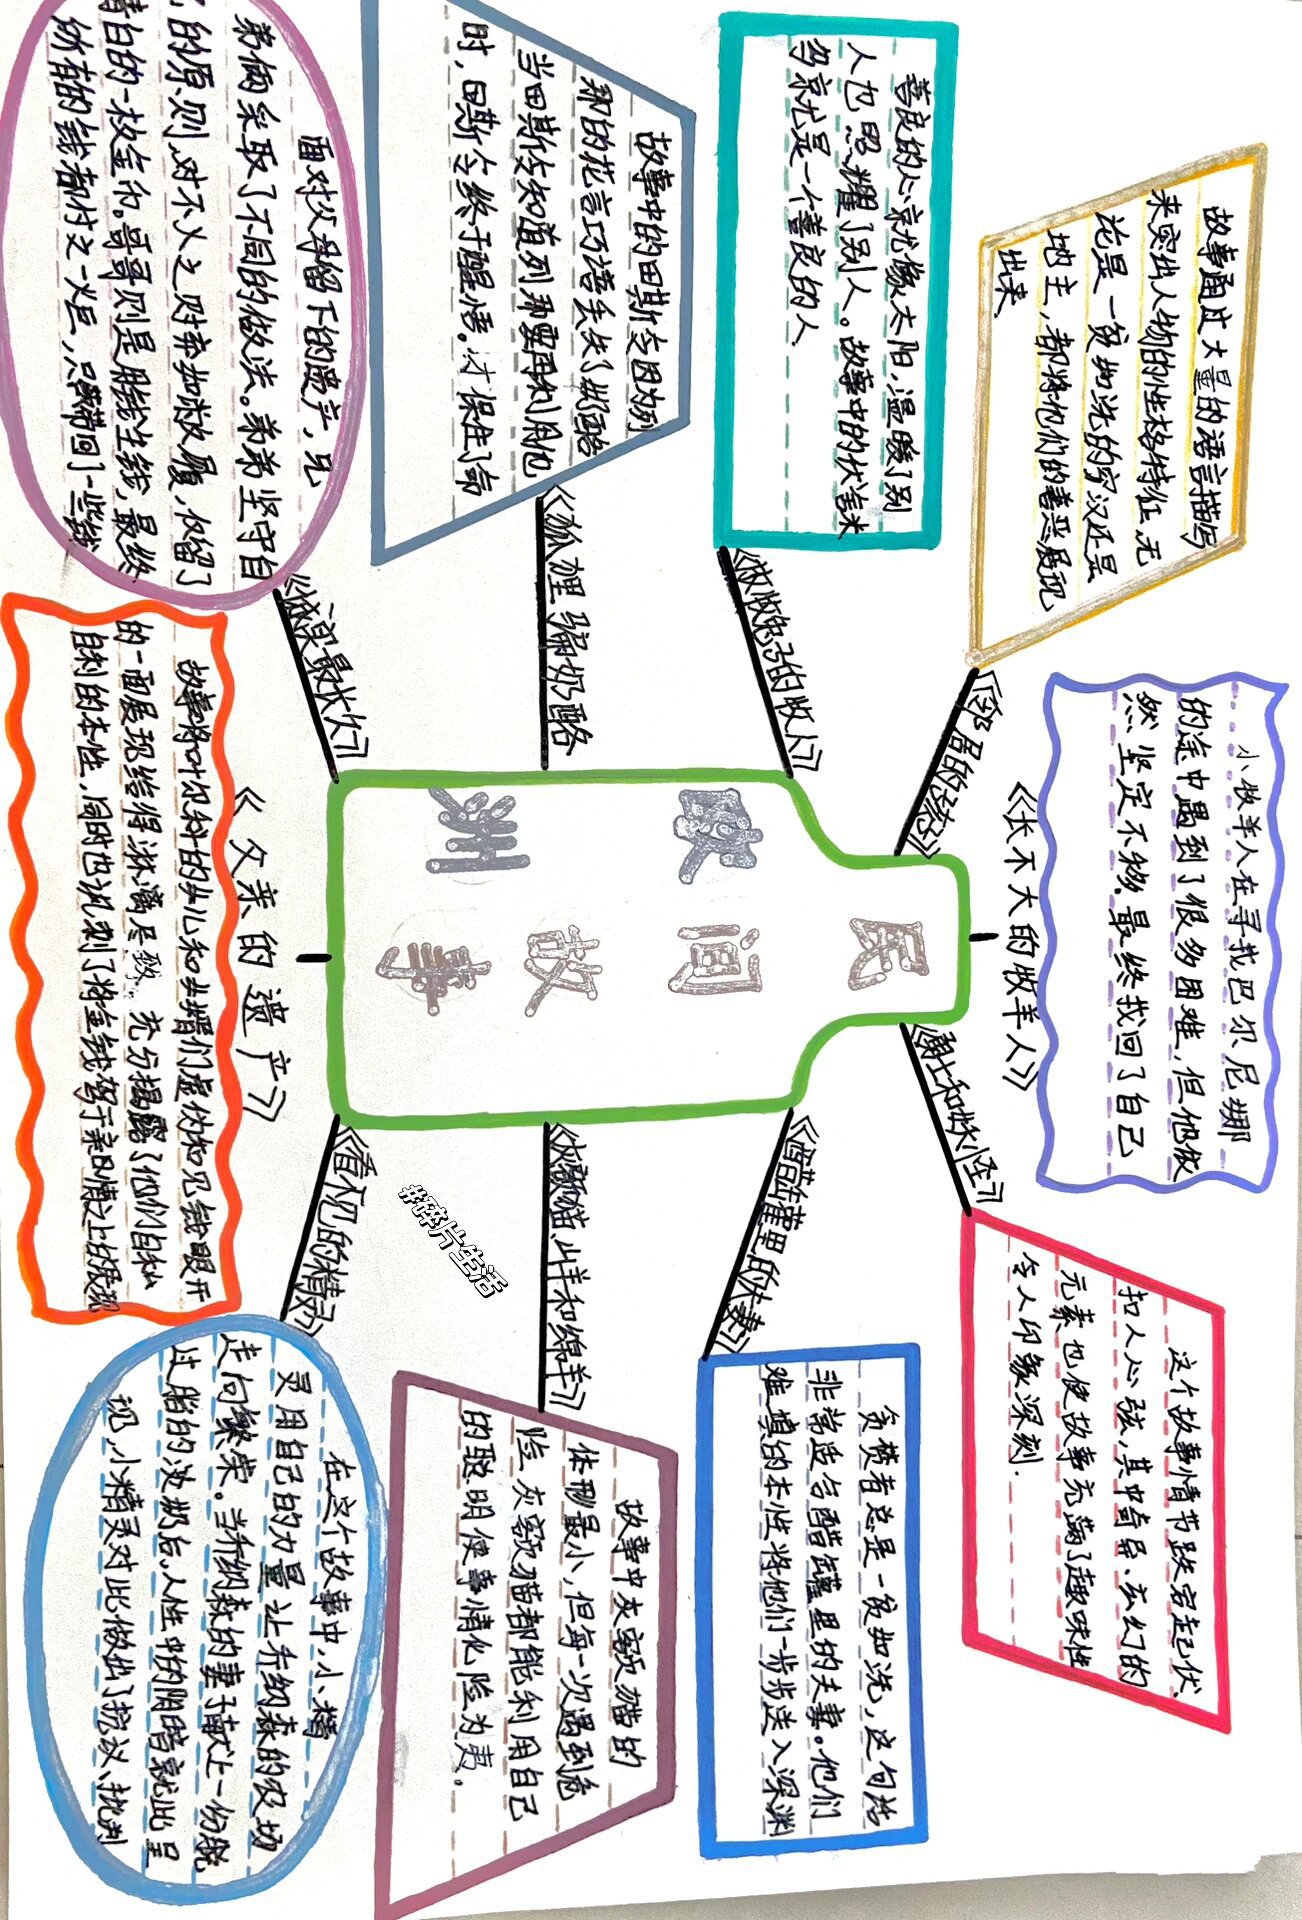 欧洲
民间故事
《邻居的恋恋》
故事通过大量的语言描写
来突出人物的性格特征,无
论是一贫如洗的穷汉还是
地主,都将他们的善恶展现
出来
《放牧兔子的牧人》
善良的心就像太阳,温暖了别
人也照耀了别人。故事中的伏洛米
多就是一个善良的人
《狐狸骗奶酪
故事中的田斯令因为列
那的花言巧语丢失了奶酪
当田斯令知道列那要再利用他
时,田斯令终于醒悟。才保住了命
最长久》
面对父母留下的遗产,兄
弟俩采取了不同的做法。弟弟坚守自
己的原则,对不义之财弃如敝履,仅留了
清白的一枚金币。哥哥则是用钱生钱,最终
所有的钱都付之一炬,只带回了一些钱
《父亲的遗产》
故事将叶尔科的女儿和女婿们虚伪和见钱眼开
的一面展现给得淋漓尽致,充分揭露了他们自私
自利的本性,同时也讽刺了将金钱驾于亲情之上的表现
《长不大的牧羊人》
小牧羊人在寻找巴尔尼娜
的途中遇到了很多困难,但他依
然坚定不移.最终找回了自己
《勇士和妖怪》
这个故事情节跌宕起伏、
扣人心弦,其中奇异、玄幻的
元素也使故事充满了趣味性
令人印象深刻.
《醋罐里的夫妻》
贪婪者总是一贫如洗,这句话
非常适合醋罐里的夫妻。他们
难填的本性将他们一步步送入深渊
《灰额猫、山羊和绵羊》
故事中灰额猫的
体形最小,但每一次遇到危
险,灰额猫都能利用自己
的聪明使事情化险为夷。
《看不见的精灵》
在这个故事中,小精
灵用自己的力量让乔纳森的农场
走向繁荣。当乔纳森的妻子献上一份脱
过脂的汤奶后,人性中的阴暗就此呈
现,小精灵对此做出了抗议、批判
#碎片生活